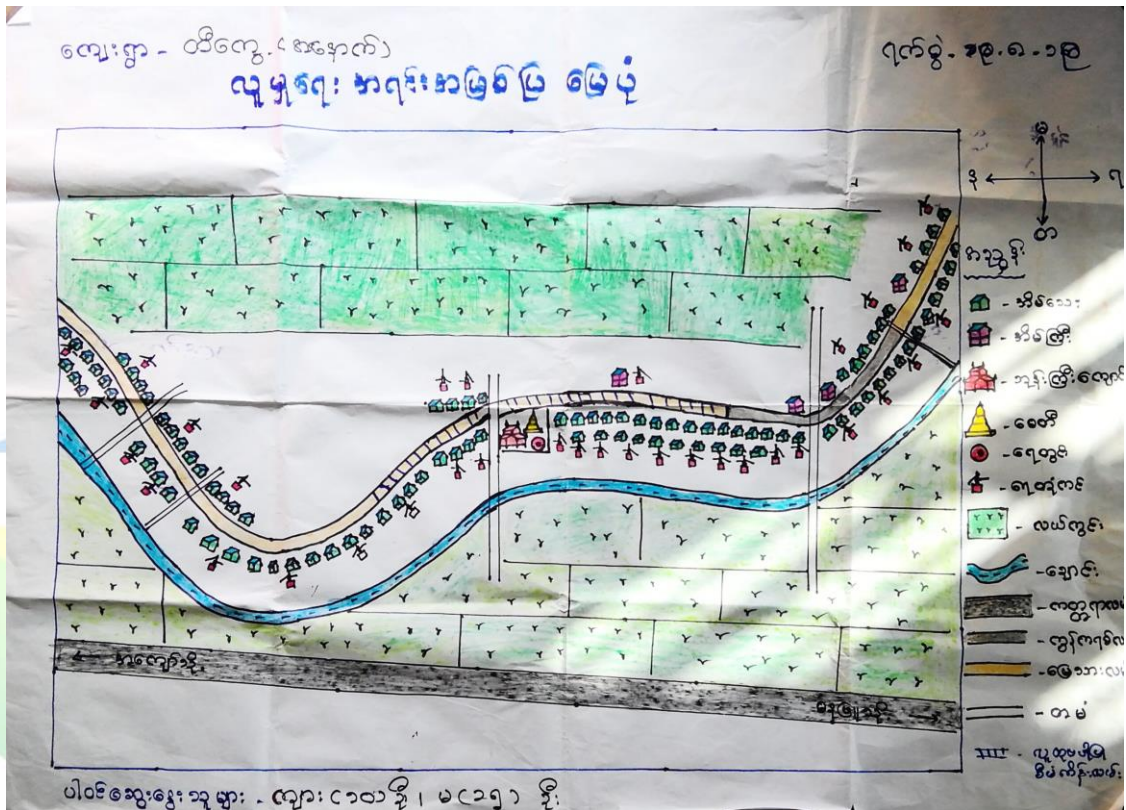 ကျေးရွာ - တီကွေ့ (အနောက်)
ရက်စွဲ - ၁၉.၈.၁၅
လူမှုရေး အရင်းအမြစ်ပြ မြေပုံ
မ
န
ရ
တ
အညွှန်း
- အိမ်သေး
- အိမ်ကြီး
- ဘုန်းကြီးကျောင်း
- စေတီ
- ရေတွင်း
- ရေတုံကင်
- လယ်ကွင်း
- ချောင်း
- ကတ္တရာလမ်း
- ကွန်ကရစ်လမ်း
- မြေသားလမ်း
- တမံ
← အကျော်သို့
→
ပါဝင်ဆွေးနွေးသူများ - ကျား (၁၀) ဦး၊ မ (၁၅) ဦး